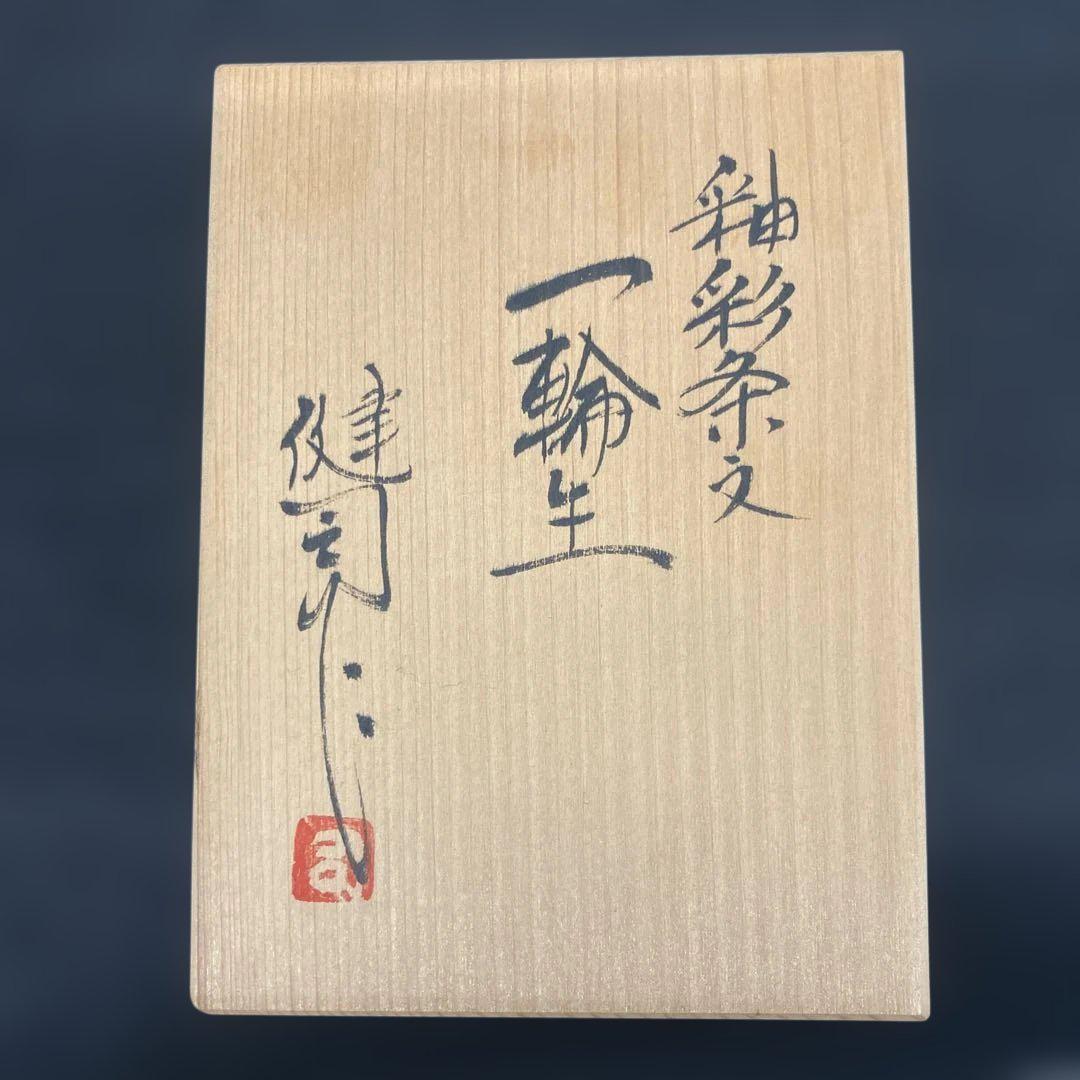 釉彩条文
一輪生
健司作